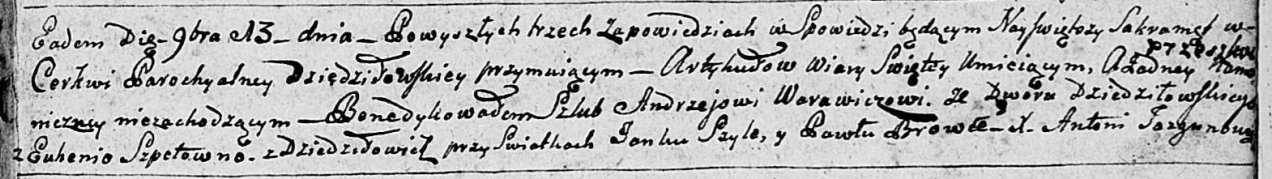 Eadem Die 9bra 13 dnia Powyszłych trzech Zapowiedziach w Spowiedzi będącym Nayświętszy Sakramęt w
Cerkwi Parochyalney Dziedziłowskiey przymuiącym Artykułow Wiary Świętey Umieiącym, A Żadney przeszkody Kano
niczney niezachodzącym Benedykowałem Szlub Andrzejowi Warawiczowi ze Dworu Dziedziłowskiego
z Euhenio Szpetowno z Dziedziłowicz przy Swiatkach Janku Szyle, y Pawłu Browce Antoni